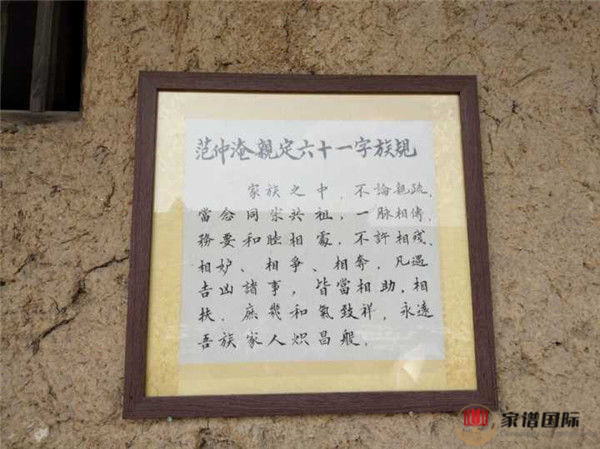 范仲淹親定六十一字族規
家族之中，不論親疏，
當念同宗共祖，一脉相傳，
務要和睦相處，不許相殘、
相妒、相爭、相奪，凡遇
吉凶諸事，皆當相助、相
扶，庶幾和氣致祥，永遠
吾族家人炽昌般。
家谱国际